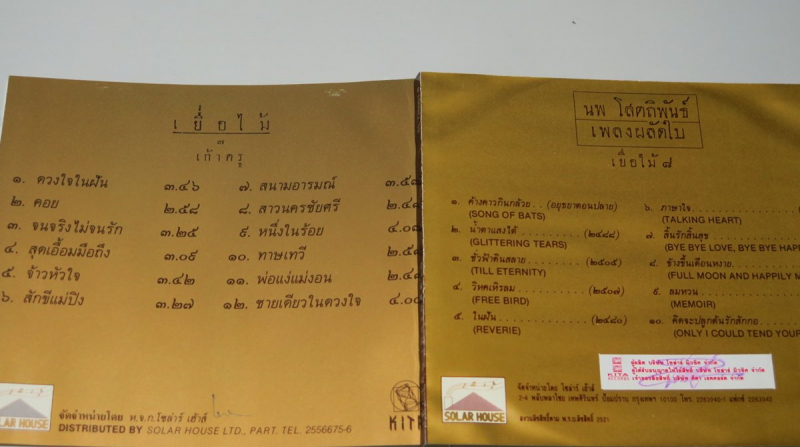 เยื่อไม้
๓
เก้าครู
๑. ดวงใจในฝัน ๓.๔๖
๒. คอย ๒.๕๘
๓. จนจริงไม่จนรัก ๓.๒๕
๔. สุดเอื้อมมือถึง ๓.๐๙
๕. จ้าวหัวใจ ๓.๔๒
๖. สักขีแม่ปิง ๓.๒๗
๗. สนามอารมณ์
๘. สาวนครชัยศรี
๙. หนึ่งในร้อย
๑๐. ทาษเทวี
๑๑. พ่อแง่แม่งอน
๑๒. ชายเดียวในดวงใจ
SOLAR HOUSE
จัดจำหน่ายโดย ห.จ.ก.โซล่าร์ เฮ้าส์
DISTRIBUTED BY SOLAR HOUSE LTD., PART. TEL. 2556675-6
นพ โสตถิพันธ์
เพลงผลัดใบ
เยื่อไม้ ๘
๑. ค้างคาวกินกล้วย . . (อยุธยาตอนปลาย)
(SONG OF BATS)
๒. น้ำตาแสงไต้ (๒๔๘๘)
(GLITTERING TEARS)
๓. ชั่วฟ้าดินสลาย (๒๕๐๕)
(TILL ETERNITY)
๔. วิหคเหิรลม (๒๕๐๗)
(FREE BIRD)
๕. ในฝัน (๒๔๘๐)
(REVERIE)
๖. ภาษาใจ
(TALKING HEART)
๗. สิ้นรักสิ้นสุข
(BYE BYE LOVE, BYE BYE
๘. ข้างขึ้นเดือนหงาย
(FULL MOON AND HAPPILY
๙. ลมหวน
(MEMOIR)
๑๐. คิดจะปลูกต้นรักสักกอ
(ONLY I COULD TEND YOUR
KITA
SOLAR HOUSE
จัดจำหน่ายโดย โซล่าร์ เฮ้าส์